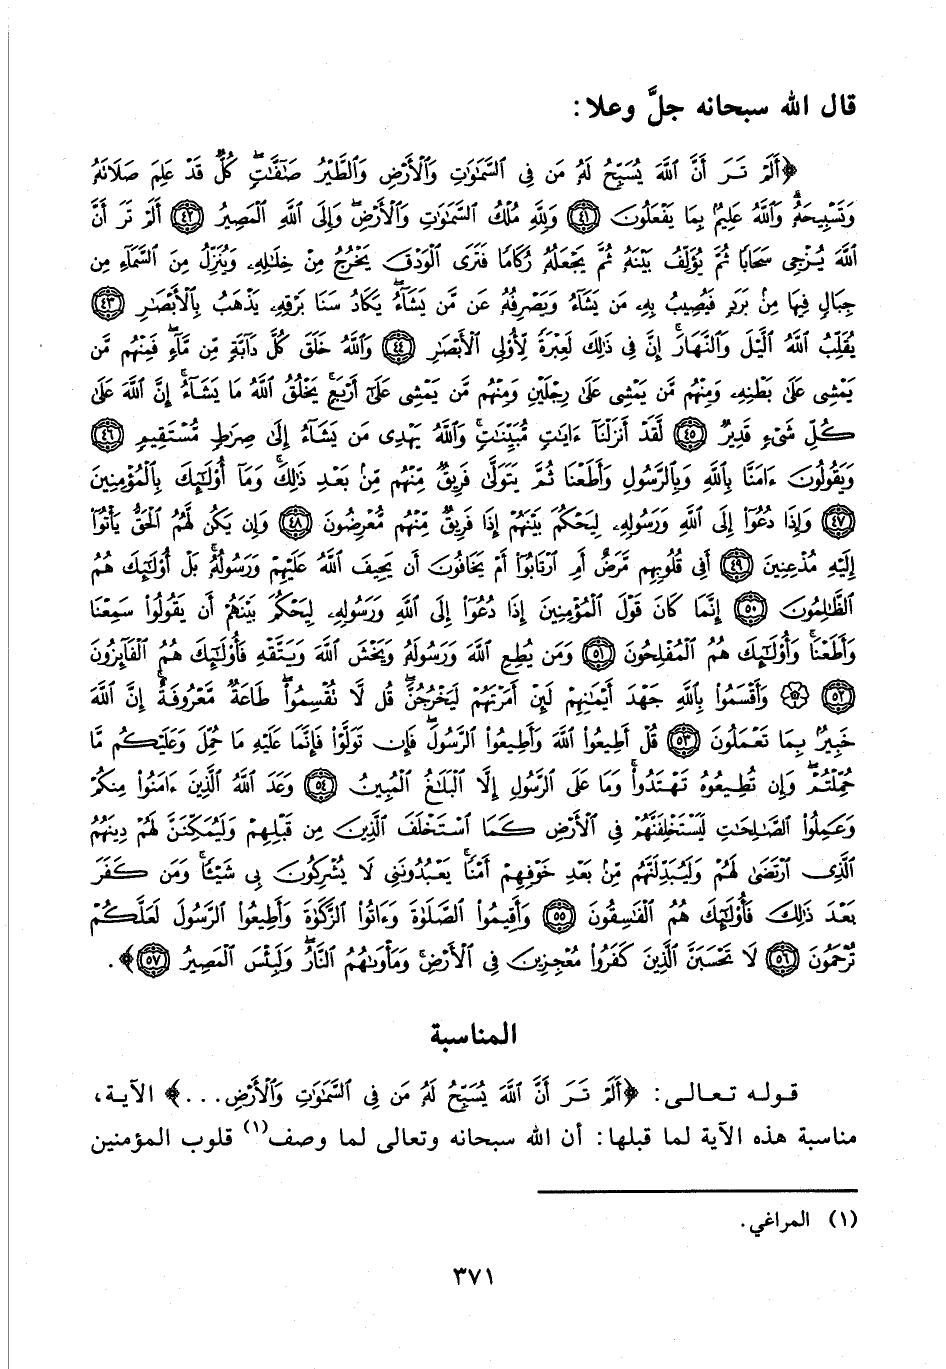 قال الله سبحانه جلَّ وعلا:
﴿أَلَمْ تَرَ أَنَّ ٱللَّهَ يُسَبِّحُ لَهُۥ مَن فِى ٱلسَّمَٰوَٰتِ وَٱلْأَرْضِ وَٱلطَّيْرُ صَٰٓفَّٰتٍۖ كُلٌّ قَدْ عَلِمَ صَلَاتَهُۥ
وَتَسْبِيحَهُۥۗ وَٱللَّهُ عَلِيمٌۢ بِمَا يَفْعَلُونَ ۝٤١ وَلِلَّهِ مُلْكُ ٱلسَّمَٰوَٰتِ وَٱلْأَرْضِۖ وَإِلَى ٱللَّهِ ٱلْمَصِيرُ ۝٤٢ أَلَمْ تَرَ أَنَّ
ٱللَّهَ يُزْجِى سَحَابًا ثُمَّ يُؤَلِّفُ بَيْنَهُۥ ثُمَّ يَجْعَلُهُۥ رُكَامًا فَتَرَى ٱلْوَدْقَ يَخْرُجُ مِنْ خِلَٰلِهِۦ وَيُنَزِّلُ مِنَ ٱلسَّمَآءِ مِن
جِبَالٍ فِيهَا مِنۢ بَرَدٍ فَيُصِيبُ بِهِۦ مَن يَشَآءُ وَيَصْرِفُهُۥ عَن مَّن يَشَآءُۖ يَكَادُ سَنَا بَرْقِهِۦ يَذْهَبُ بِٱلْأَبْصَٰرِ ۝٤٣
يُقَلِّبُ ٱللَّهُ ٱلَّيْلَ وَٱلنَّهَارَۚ إِنَّ فِى ذَٰلِكَ لَعِبْرَةً لِّأُو۟لِى ٱلْأَبْصَٰرِ ۝٤٤ وَٱللَّهُ خَلَقَ كُلَّ دَآبَّةٍ مِّن مَّآءٍۖ فَمِنْهُم مَّن
يَمْشِى عَلَىٰ بَطْنِهِۦ وَمِنْهُم مَّن يَمْشِى عَلَىٰ رِجْلَيْنِ وَمِنْهُم مَّن يَمْشِى عَلَىٰٓ أَرْبَعٍۚ يَخْلُقُ ٱللَّهُ مَا يَشَآءُۚ إِنَّ ٱللَّهَ عَلَىٰ
كُلِّ شَىْءٍ قَدِيرٌ ۝٤٥ لَّقَدْ أَنزَلْنَآ ءَايَٰتٍ مُّبَيِّنَٰتٍۚ وَٱللَّهُ يَهْدِى مَن يَشَآءُ إِلَىٰ صِرَٰطٍ مُّسْتَقِيمٍ ۝٤٦
وَيَقُولُونَ ءَامَنَّا بِٱللَّهِ وَبِٱلرَّسُولِ وَأَطَعْنَا ثُمَّ يَتَوَلَّىٰ فَرِيقٌ مِّنْهُم مِّنۢ بَعْدِ ذَٰلِكَۚ وَمَآ أُو۟لَٰٓئِكَ بِٱلْمُؤْمِنِينَ
۝٤٧ وَإِذَا دُعُوٓا۟ إِلَى ٱللَّهِ وَرَسُولِهِۦ لِيَحْكُمَ بَيْنَهُمْ إِذَا فَرِيقٌ مِّنْهُم مُّعْرِضُونَ ۝٤٨ وَإِن يَكُن لَّهُمُ ٱلْحَقُّ يَأْتُوٓا۟
إِلَيْهِ مُذْعِنِينَ ۝٤٩ أَفِى قُلُوبِهِم مَّرَضٌ أَمِ ٱرْتَابُوٓا۟ أَمْ يَخَافُونَ أَن يَحِيفَ ٱللَّهُ عَلَيْهِمْ وَرَسُولُهُۥۚ بَلْ أُو۟لَٰٓئِكَ هُمُ
ٱلظَّٰلِمُونَ ۝٥٠ إِنَّمَا كَانَ قَوْلَ ٱلْمُؤْمِنِينَ إِذَا دُعُوٓا۟ إِلَى ٱللَّهِ وَرَسُولِهِۦ لِيَحْكُمَ بَيْنَهُمْ أَن يَقُولُوا۟ سَمِعْنَا
وَأَطَعْنَاۚ وَأُو۟لَٰٓئِكَ هُمُ ٱلْمُفْلِحُونَ ۝٥١ وَمَن يُطِعِ ٱللَّهَ وَرَسُولَهُۥ وَيَخْشَ ٱللَّهَ وَيَتَّقْهِ فَأُو۟لَٰٓئِكَ هُمُ ٱلْفَآئِزُونَ
۝٥٢ ۞ وَأَقْسَمُوا۟ بِٱللَّهِ جَهْدَ أَيْمَٰنِهِمْ لَئِنْ أَمَرْتَهُمْ لَيَخْرُجُنَّۖ قُل لَّا تُقْسِمُوا۟ۖ طَاعَةٌ مَّعْرُوفَةٌۚ إِنَّ ٱللَّهَ
خَبِيرٌۢ بِمَا تَعْمَلُونَ ۝٥٣ قُلْ أَطِيعُوا۟ ٱللَّهَ وَأَطِيعُوا۟ ٱلرَّسُولَۖ فَإِن تَوَلَّوْا۟ فَإِنَّمَا عَلَيْهِ مَا حُمِّلَ وَعَلَيْكُم مَّا
حُمِّلْتُمْۖ وَإِن تُطِيعُوهُ تَهْتَدُوا۟ۚ وَمَا عَلَى ٱلرَّسُولِ إِلَّا ٱلْبَلَٰغُ ٱلْمُبِينُ ۝٥٤ وَعَدَ ٱللَّهُ ٱلَّذِينَ ءَامَنُوا۟ مِنكُمْ
وَعَمِلُوا۟ ٱلصَّٰلِحَٰتِ لَيَسْتَخْلِفَنَّهُمْ فِى ٱلْأَرْضِ كَمَا ٱسْتَخْلَفَ ٱلَّذِينَ مِن قَبْلِهِمْ وَلَيُمَكِّنَنَّ لَهُمْ دِينَهُمُ
ٱلَّذِى ٱرْتَضَىٰ لَهُمْ وَلَيُبَدِّلَنَّهُم مِّنۢ بَعْدِ خَوْفِهِمْ أَمْنًاۚ يَعْبُدُونَنِى لَا يُشْرِكُونَ بِى شَيْـًٔاۚ وَمَن كَفَرَ
بَعْدَ ذَٰلِكَ فَأُو۟لَٰٓئِكَ هُمُ ٱلْفَٰسِقُونَ ۝٥٥ وَأَقِيمُوا۟ ٱلصَّلَوٰةَ وَءَاتُوا۟ ٱلزَّكَوٰةَ وَأَطِيعُوا۟ ٱلرَّسُولَ لَعَلَّكُمْ
تُرْحَمُونَ ۝٥٦ لَا تَحْسَبَنَّ ٱلَّذِينَ كَفَرُوا۟ مُعْجِزِينَ فِى ٱلْأَرْضِۚ وَمَأْوَىٰهُمُ ٱلنَّارُۖ وَلَبِئْسَ ٱلْمَصِيرُ ۝٥٧﴾.
المناسبة
قوله تعالى: ﴿أَلَمْ تَرَ أَنَّ ٱللَّهَ يُسَبِّحُ لَهُۥ مَن فِى ٱلسَّمَٰوَٰتِ وَٱلْأَرْضِ...﴾ الآية،
مناسبة هذه الآية لما قبلها: أن الله سبحانه وتعالى لما وصف(١) قلوب المؤمنين
(١) المراغي.
٣٧١